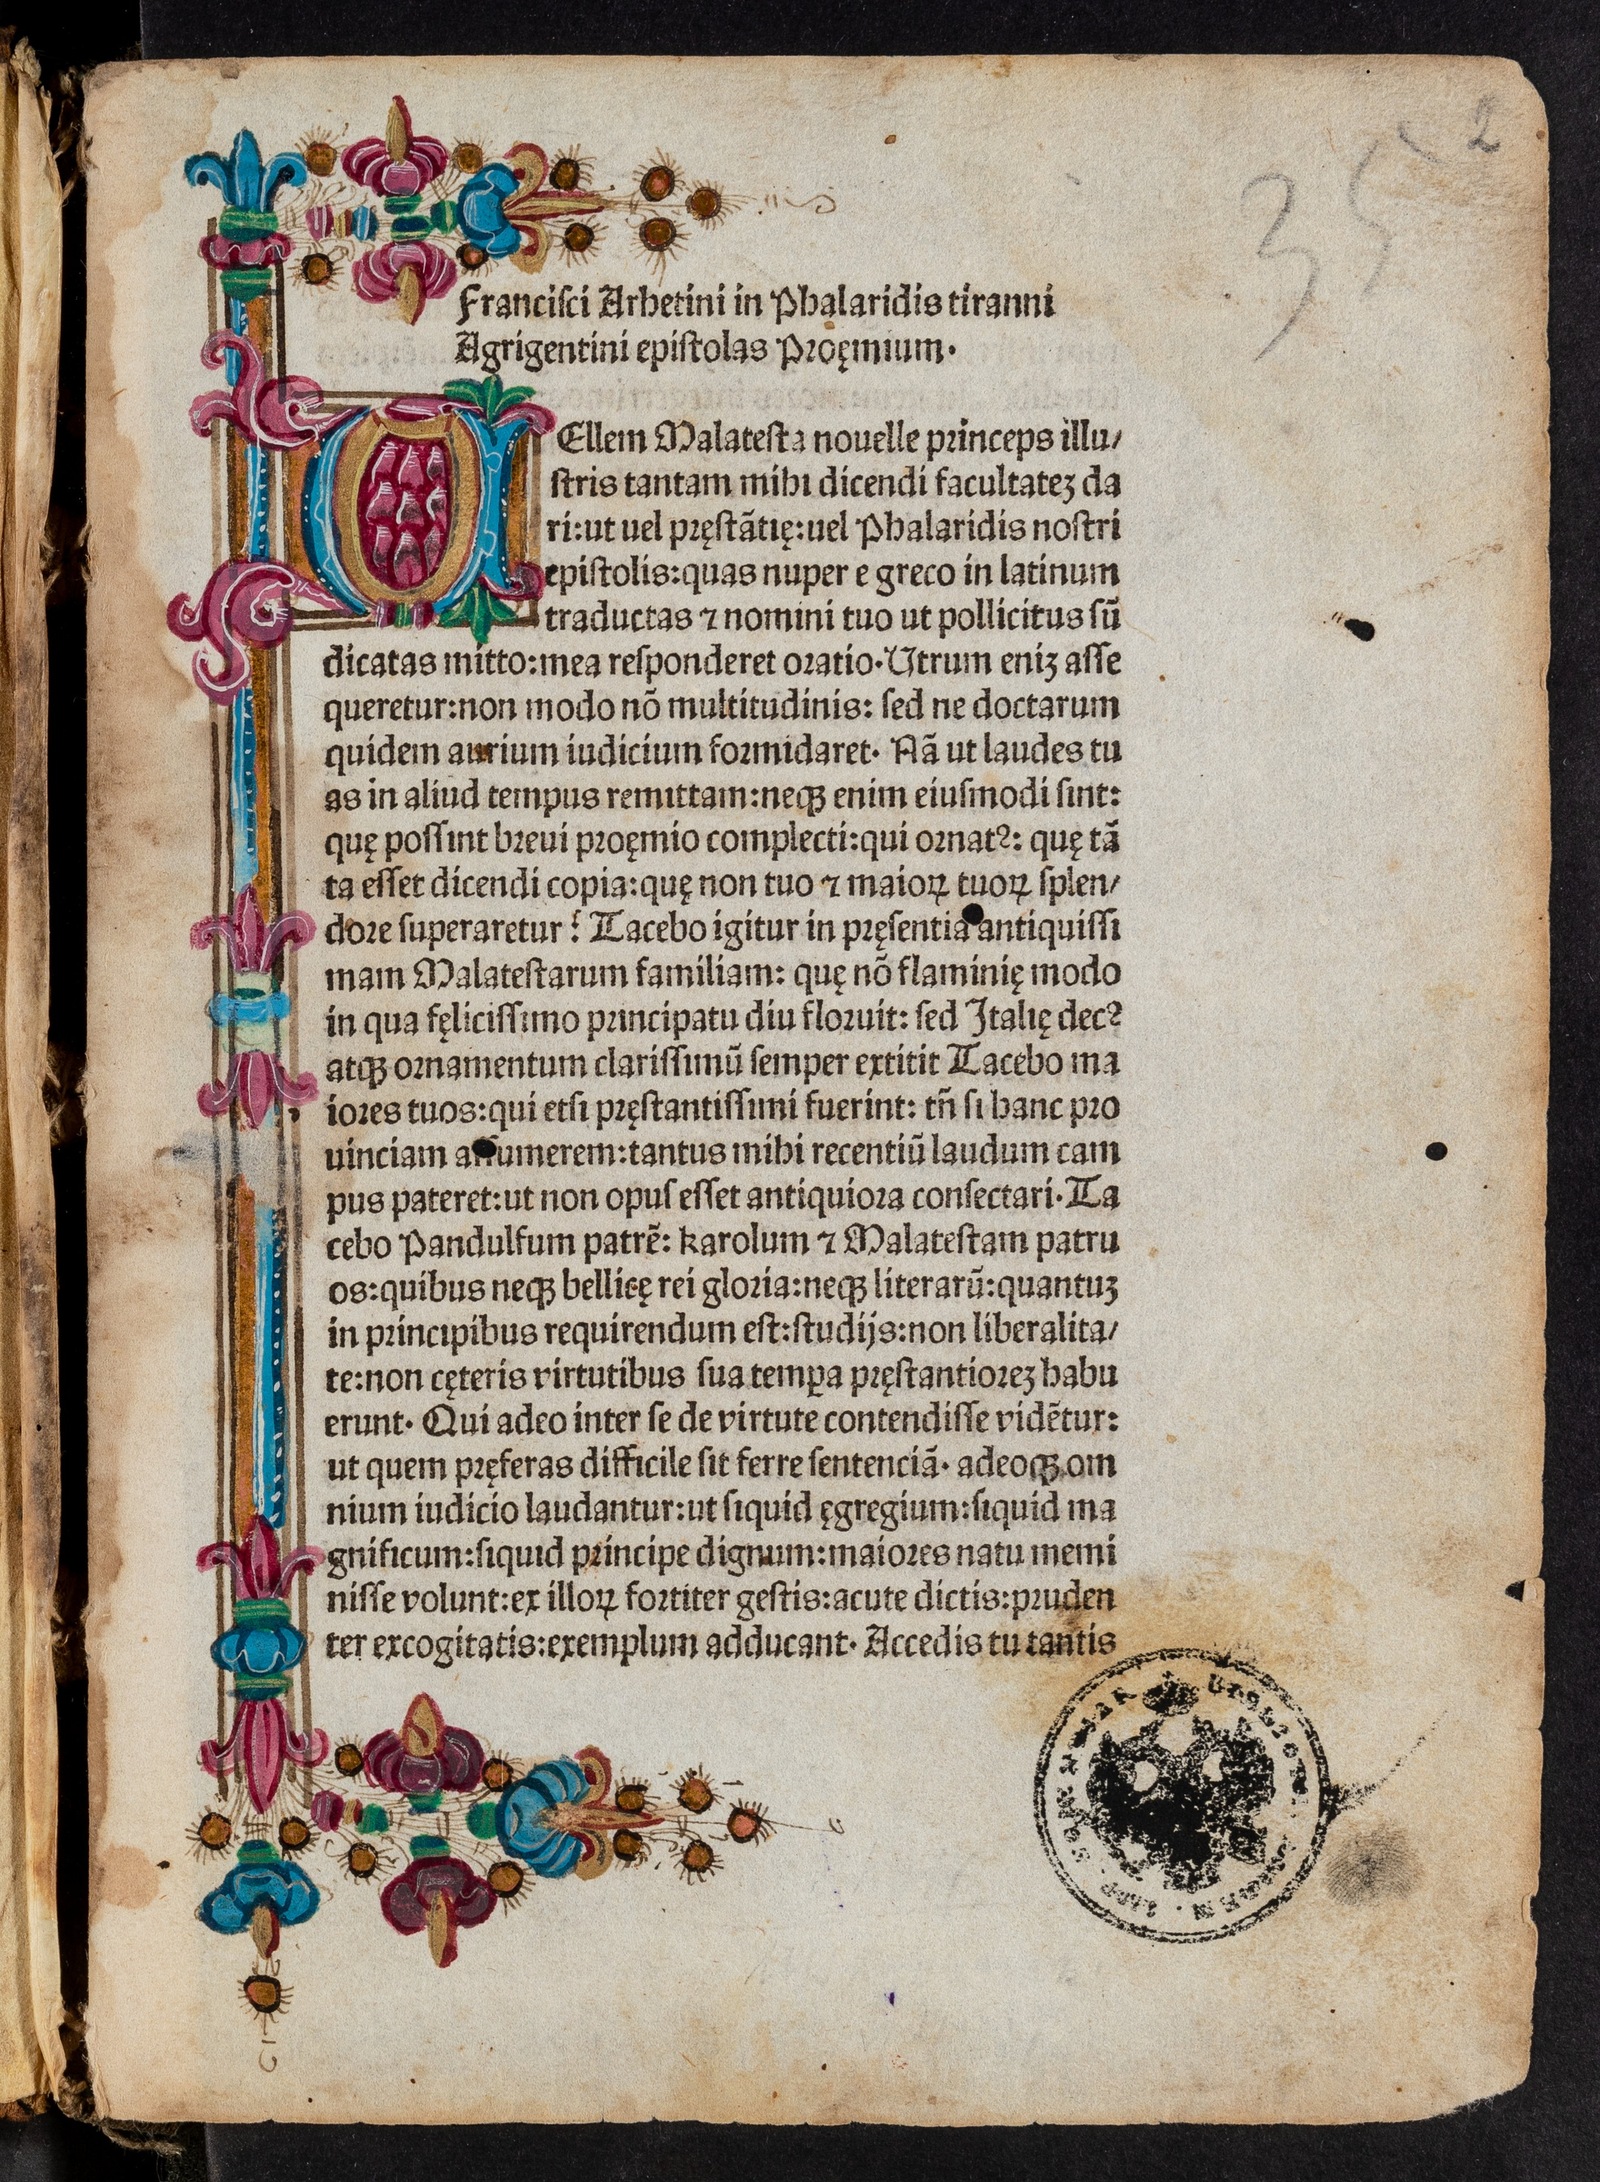 2
35
Francisci Arhetini in Phalaridis tiranni
Agrigentini epistolas Proęmium.
VEllem Malatesta nouelle princeps illu/
stris tantam mihi dicendi facultateʒ da
ri:ut uel pręstãtię:uel Phalaridis nostri
epistolis:quas nuper e greco in latinum
traductas ⁊ nomini tuo ut pollicitus sũ
dicatas mitto:mea responderet oratio·Utrum eniʒ asse
queretur:non modo nõ multitudinis: sed ne doctarum
quidem aurium iudicium formidaret· Nã ut laudes tu
as in aliud tempus remittam:neqꝫ enim eiusmodi sint:
quę possint breui proęmio complecti:qui ornatꝰ: quę tã
ta esset dicendi copia:quę non tuo ⁊ maioꝝ tuoꝝ splen/
dore superaretur? Tacebo igitur in pręsentia antiquissi
mam Malatestarum familiam: quę nõ flaminię modo
in qua fęlicissimo principatu diu floruit: sed Italię decꝰ
atqꝫ ornamentum clarissimũ semper extitit Tacebo ma
iores tuos:qui etsi pręstantissimi fuerint: tñ si hanc pro
uinciam assumerem:tantus mihi recentiũ laudum cam
pus pateret:ut non opus esset antiquiora consectari·Ta
cebo Pandulfum patrẽ: karolum ⁊ Malatestam patru
os:quibus neqꝫ bellicę rei gloria:neqꝫ literarũ:quantuʒ
in principibus requirendum est:studijs:non liberalita/
te:non cęteris virtutibus sua temꝑa pręstantioreʒ habu
erunt· Qui adeo inter se de virtute contendisse vidẽtur:
ut quem pręferas difficile sit ferre sentenciã· adeoqꝫ om
nium iudicio laudantur:ut siquid ęgregium:siquid ma
gnificum:siquid principe dignum:maiores natu memi
nisse volunt:ex illoꝝ fortiter gestis:acute dictis:pruden
ter excogitatis:exemplum adducant· Accedis tu tantis